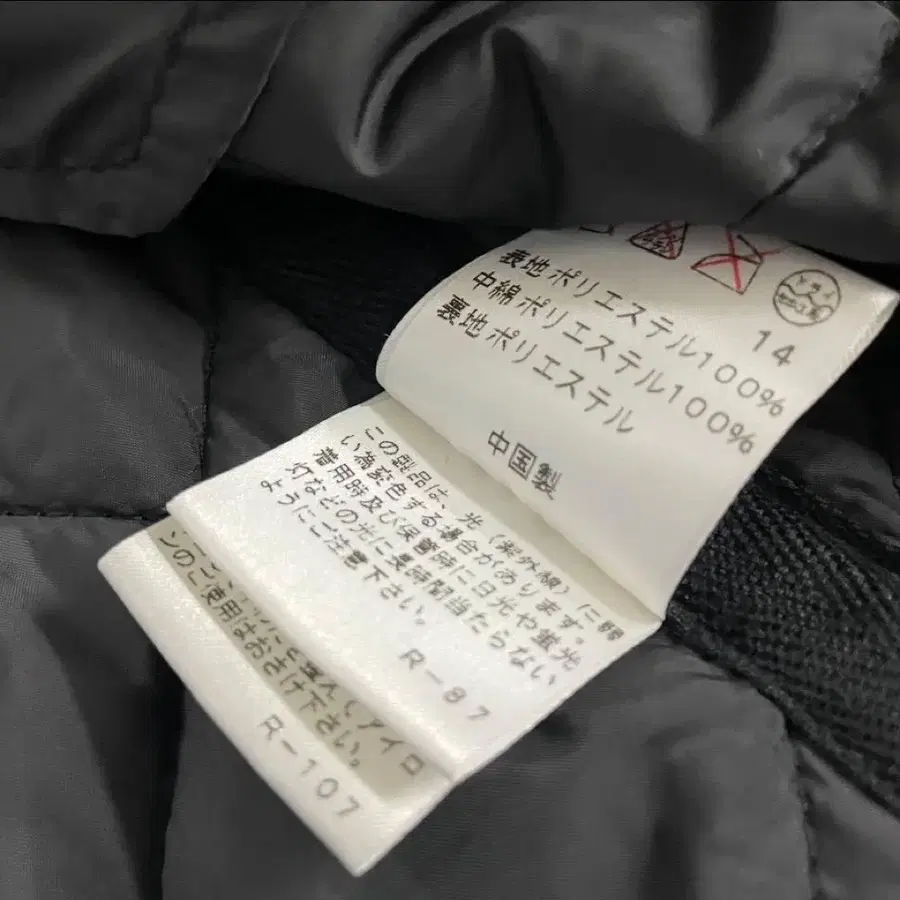 14
表地ポリエステル100%
中綿ポリエステル100%
裏地ポリエステル
中国製
この製品は、光（紫外線）に弱
い為変色する場合があります。
着用時及び保管時に日光や蛍光
灯などの光に長時間当たらない
ようにご注意下さい。
R-87
アイロ
ンのご使用はおさけ下さい。
R-107